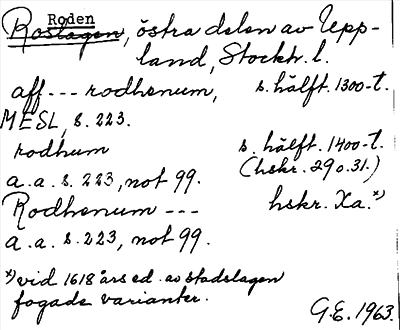 Roden
Roslagen, östra delen av Upp-
land, Stockh. l.
aff --- rodhenum, s. hälft. 1300-t.
MESL, s. 223.
rodhum s. hälft. 1400-t.
(hskr. 29 o. 31.)
a.a. s. 223, not 99.
Rodhenum --- hskr. Xa.*)
a.a. s. 223, not 99.
*) vid 1618 års ed. av stadslagen
fogade varianter.
G.E. 1963.